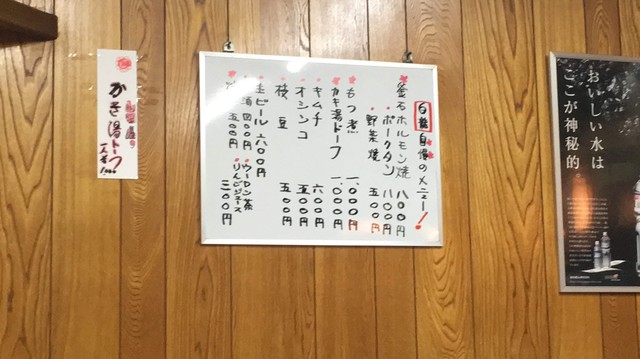 自慢のメニュー!
釜石ホルモン焼 八〇〇円
ポークタン 八〇〇円
野菜焼 五〇〇円
もつ煮 一、〇〇〇円
カキ湯ドーフ 一、〇〇〇円
キムチ 六〇〇円
オシンコ 五〇〇円
枝豆 五〇〇円
生ビール 六〇〇円
酒 四〇〇円
五〇〇円
ウーロン茶
りんごジュース
三〇〇円
かき湯トーフ
おいしい水は
ここが神秘的。